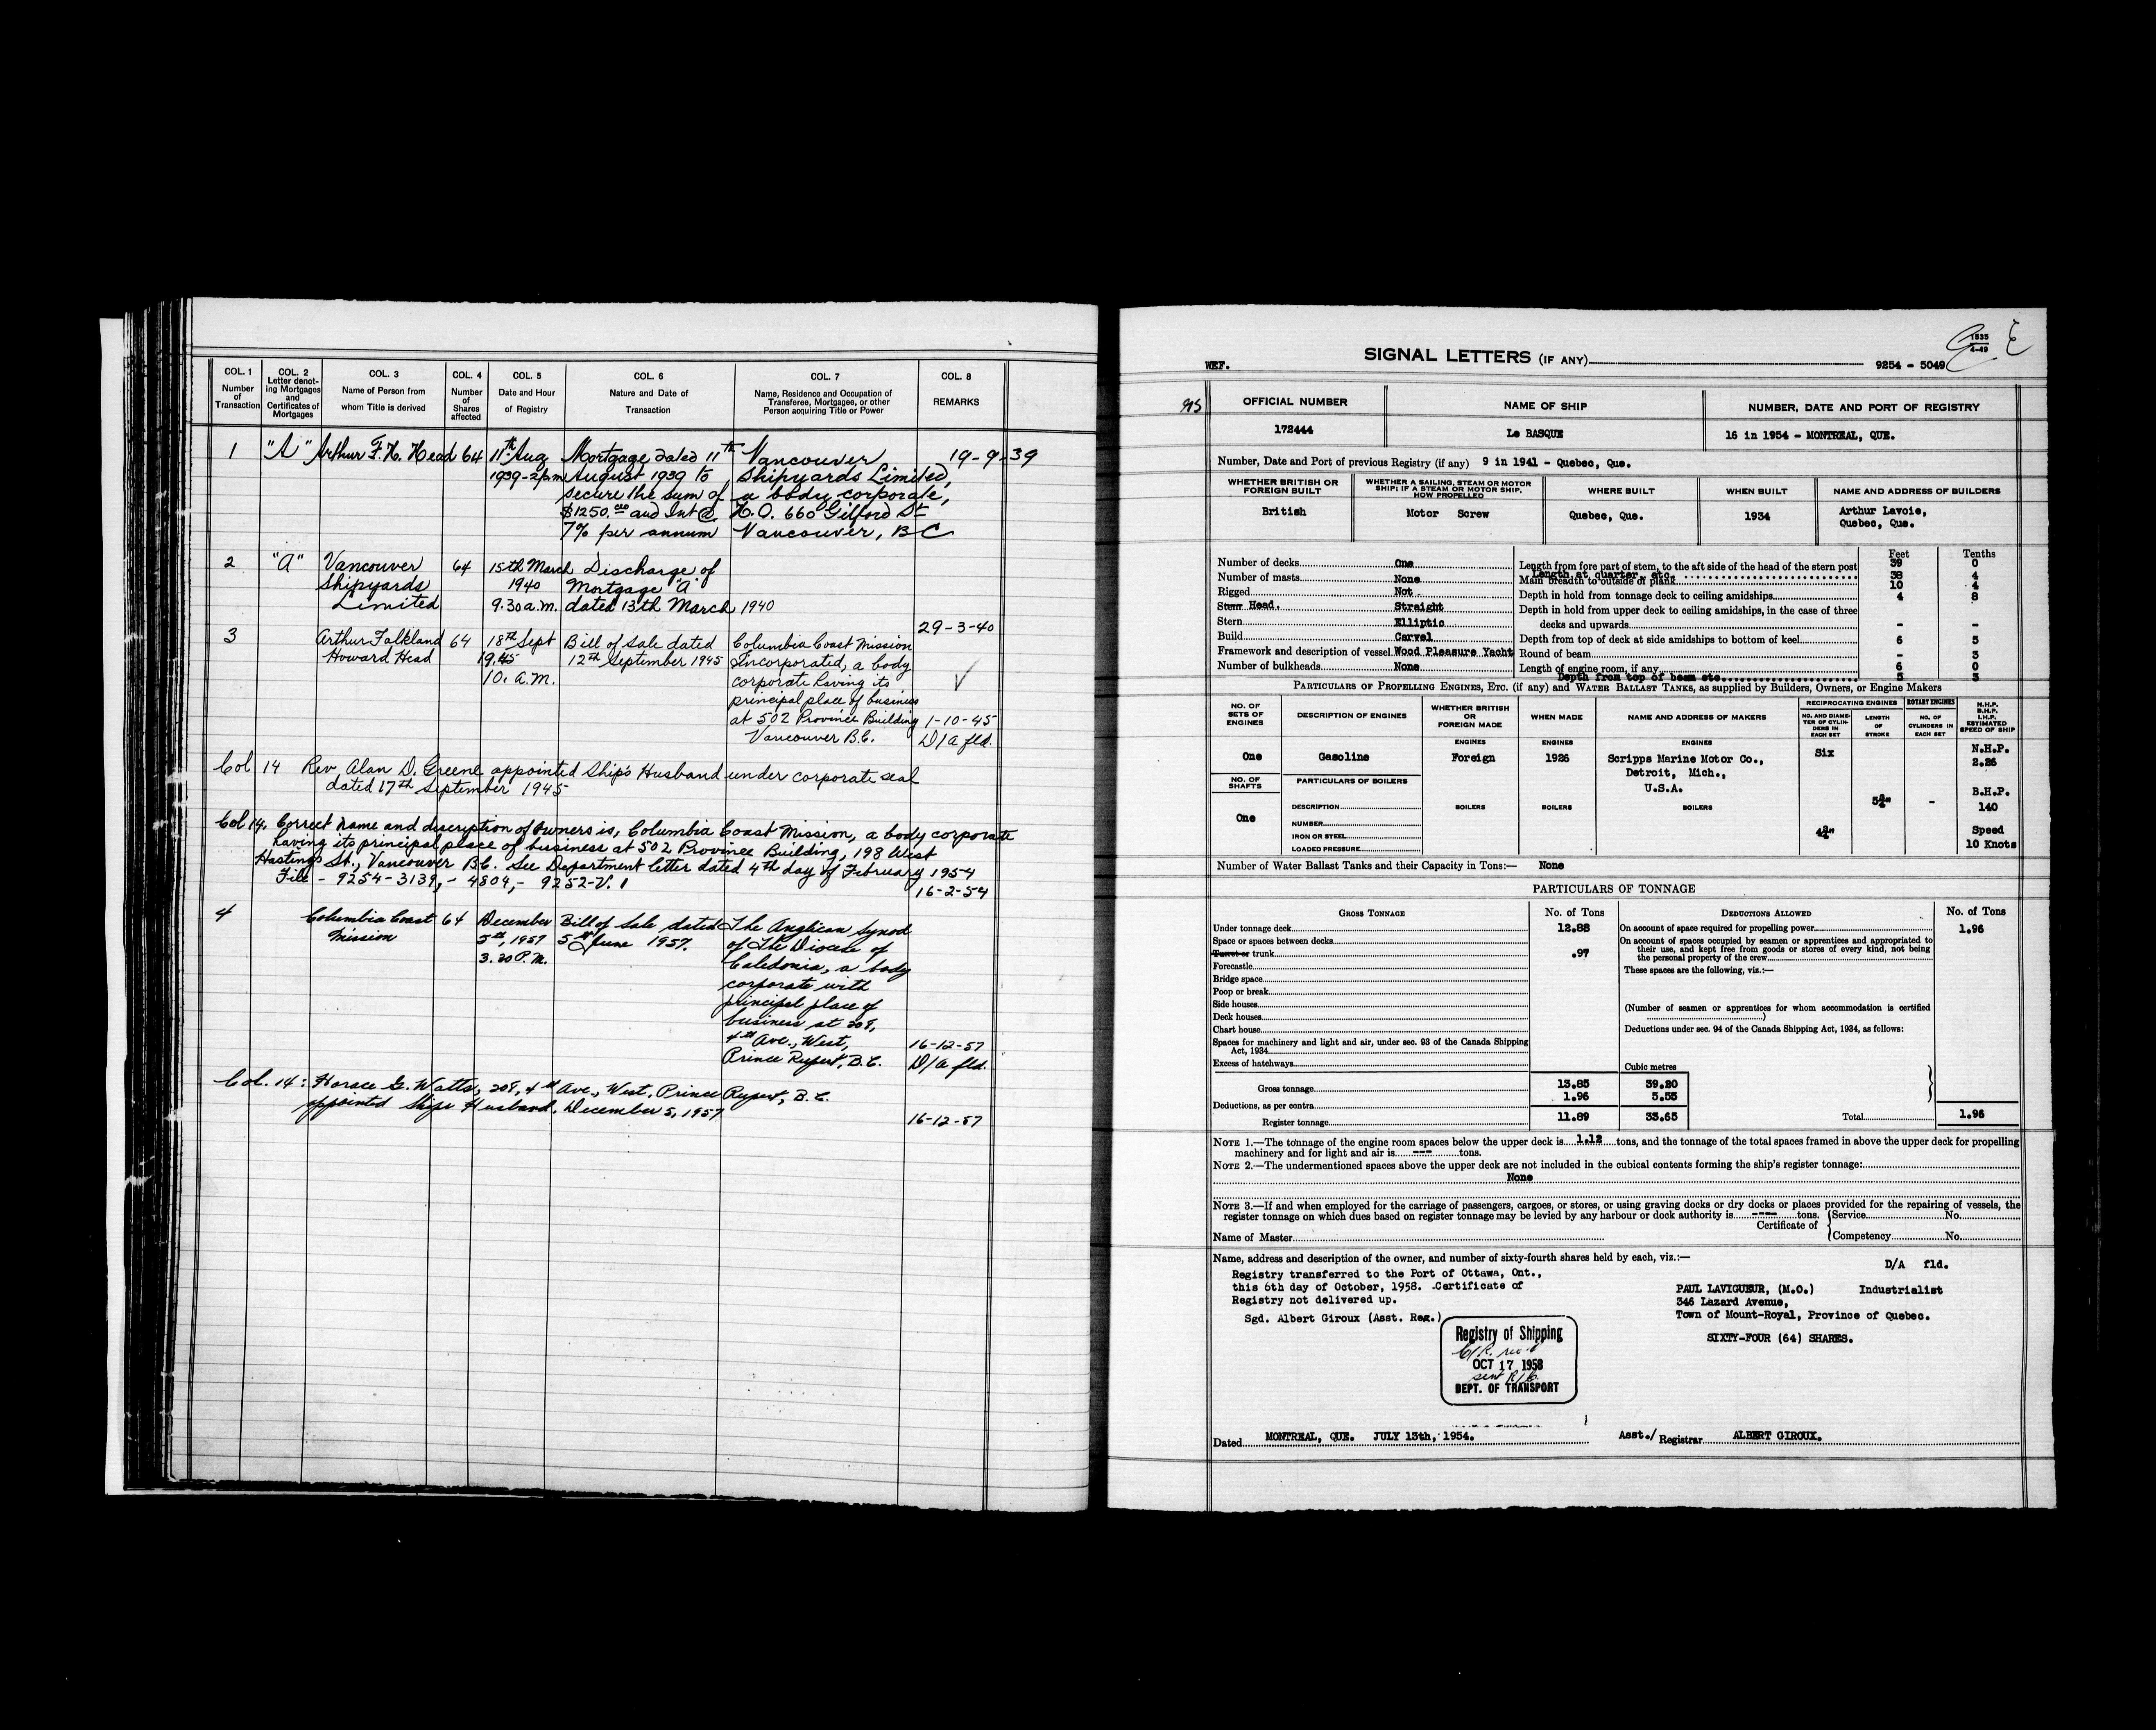 COL. 1 Number of Transaction
COL. 2 Letter denoting Mortgages and Certificates of Mortgages
COL. 3 Name of Person from whom Title is derived
COL. 4 Number of Shares affected
COL. 5 Date and Hour of Registry
COL. 6 Nature and Date of Transaction
COL. 7 Name, Residence and Occupation of Transferee, Mortgagee, or other Person acquiring Title or Power
COL. 8 REMARKS
1 "A" Arthur F. H. Head 64 11th Aug Mortgage dated 11th Vancouver 19-9-39
1939-2pm August 1939 to Shipyards Limited,
secure the sum of a body corporate,
$1250.00 and Int @ H.O. 660 Gilford St
7% per annum Vancouver, BC
2 "A" Vancouver 64 15th March Discharge of
Shipyards 1940 Mortgage "A"
Limited 9.30 a.m. dated 13th March 1940
29-3-40
3 Arthur Falkland 64 18th Sept Bill of Sale dated Columbia Coast Mission
Howard Head 1945 12th September 1945 Incorporated, a body
10. a.m. corporate having its
principal place of business
at 502 Province Building 1-10-45
Vancouver B.C. D/A fld.
Col 14 Rev. Alan D. Greene appointed Ship's Husband under corporate seal
dated 17th September 1945
Col 14. Correct name and description of owners is, Columbia Coast Mission, a body corporate
having its principal place of business at 502 Province Building, 198 West
Hastings St., Vancouver B.C. See Department letter dated 4th day of February 1954
File - 9254-3139, - 4804, - 9252-V. 1
16-2-54
4 Columbia Coast 64 December Bill of Sale dated The Anglican Synod
Mission 5th, 1957 5th June 1957. of The Diocese of
3.20 P.M. Caledonia, a body
corporate with
principal place of
business at 208,
4th Ave., West, 16-12-57
Prince Rupert, B.C. D/A fld.
Col. 14: Horace G. Watts, 208, 4th Ave., West, Prince Rupert, B.C.
appointed Ships Husband, December 5, 1957
16-12-57
1535
4-49
WEF. SIGNAL LETTERS (IF ANY) 9254 - 5049
OFFICIAL NUMBER NAME OF SHIP NUMBER, DATE AND PORT OF REGISTRY
172444 Le BASQUE 16 in 1954 - MONTREAL, QUE.
Number, Date and Port of previous Registry (if any) 9 in 1941 - Quebec, Que.
WHETHER BRITISH OR FOREIGN BUILT
WHETHER A SAILING, STEAM OR MOTOR SHIP; IF A STEAM OR MOTOR SHIP, HOW PROPELLED
WHERE BUILT WHEN BUILT NAME AND ADDRESS OF BUILDERS
British Motor Screw Quebec, Que. 1934 Arthur Lavoie,
Quebec, Que.
Feet Tenths
Number of decks One Length from fore part of stem, to the aft side of the head of the stern post 39 0
Length at quarter, etc. 38 4
Number of masts None Main breadth to outside of plank 10 4
Rigged Not Depth in hold from tonnage deck to ceiling amidships 4 8
Stem Head. Straight Depth in hold from upper deck to ceiling amidships, in the case of three
Stern Elliptic decks and upwards - -
Build Carvel Depth from top of deck at side amidships to bottom of keel 6 5
Framework and description of vessel Wood Pleasure Yacht Round of beam - 3
Number of bulkheads None Length of engine room, if any 6 0
Depth from top of beam etc. 5 3
PARTICULARS OF PROPELLING ENGINES, ETC. (if any) and WATER BALLAST TANKS, as supplied by Builders, Owners, or Engine Makers
NO. OF SETS OF ENGINES
DESCRIPTION OF ENGINES
WHETHER BRITISH OR FOREIGN MADE
WHEN MADE
NAME AND ADDRESS OF MAKERS
RECIPROCATING ENGINES ROTARY ENGINES
NO. AND DIAMETER OF CYLINDERS IN EACH SET
LENGTH OF STROKE
NO. OF CYLINDERS IN EACH SET
N.H.P. B.H.P. I.H.P. ESTIMATED SPEED OF SHIP
ENGINES ENGINES ENGINES
One Gasoline Foreign 1926 Scripps Marine Motor Co., Six N.H.P.
Detroit, Mich., 2.26
U.S.A.
NO. OF SHAFTS PARTICULARS OF BOILERS
B.H.P.
DESCRIPTION BOILERS BOILERS BOILERS 5¾" - 140
One NUMBER
IRON OR STEEL 4¾" Speed
LOADED PRESSURE 10 Knots
Number of Water Ballast Tanks and their Capacity in Tons:— None
PARTICULARS OF TONNAGE
GROSS TONNAGE No. of Tons DEDUCTIONS ALLOWED No. of Tons
Under tonnage deck 12.88 On account of space required for propelling power 1.96
Space or spaces between decks On account of spaces occupied by seamen or apprentices and appropriated to
Turret or trunk .97 their use, and kept free from goods or stores of every kind, not being
the personal property of the crew
Forecastle These spaces are the following, viz.:—
Bridge space
Poop or break
Side houses (Number of seamen or apprentices for whom accommodation is certified
Deck houses )
Chart house Deductions under sec. 94 of the Canada Shipping Act, 1934, as follows:
Spaces for machinery and light and air, under sec. 93 of the Canada Shipping
Act, 1934
Excess of hatchways Cubic metres
Gross tonnage 13.85 39.20
Deductions, as per contra 1.96 5.55
Register tonnage 11.89 33.65 Total 1.96
NOTE 1.—The tonnage of the engine room spaces below the upper deck is 1.12 tons, and the tonnage of the total spaces framed in above the upper deck for propelling
machinery and for light and air is --- tons.
NOTE 2.—The undermentioned spaces above the upper deck are not included in the cubical contents forming the ship's register tonnage:
None
NOTE 3.—If and when employed for the carriage of passengers, cargoes, or stores, or using graving docks or dry docks or places provided for the repairing of vessels, the
register tonnage on which dues based on register tonnage may be levied by any harbour or dock authority is ---- tons.
Certificate of Service No.
Name of Master Competency No.
Name, address and description of the owner, and number of sixty-fourth shares held by each, viz.:—
D/A fld.
Registry transferred to the Port of Ottawa, Ont.,
this 6th day of October, 1958. Certificate of
Registry not delivered up.
Sgd. Albert Giroux (Asst. Reg.)
PAUL LAVIGUEUR, (M.O.) Industrialist
346 Lazard Avenue,
Town of Mount-Royal, Province of Quebec.
SIXTY-FOUR (64) SHARES.
Registry of Shipping
OCT 17 1958
DEPT. OF TRANSPORT
Dated MONTREAL, QUE. JULY 13th, 1954. Asst./ Registrar ALBERT GIROUX.